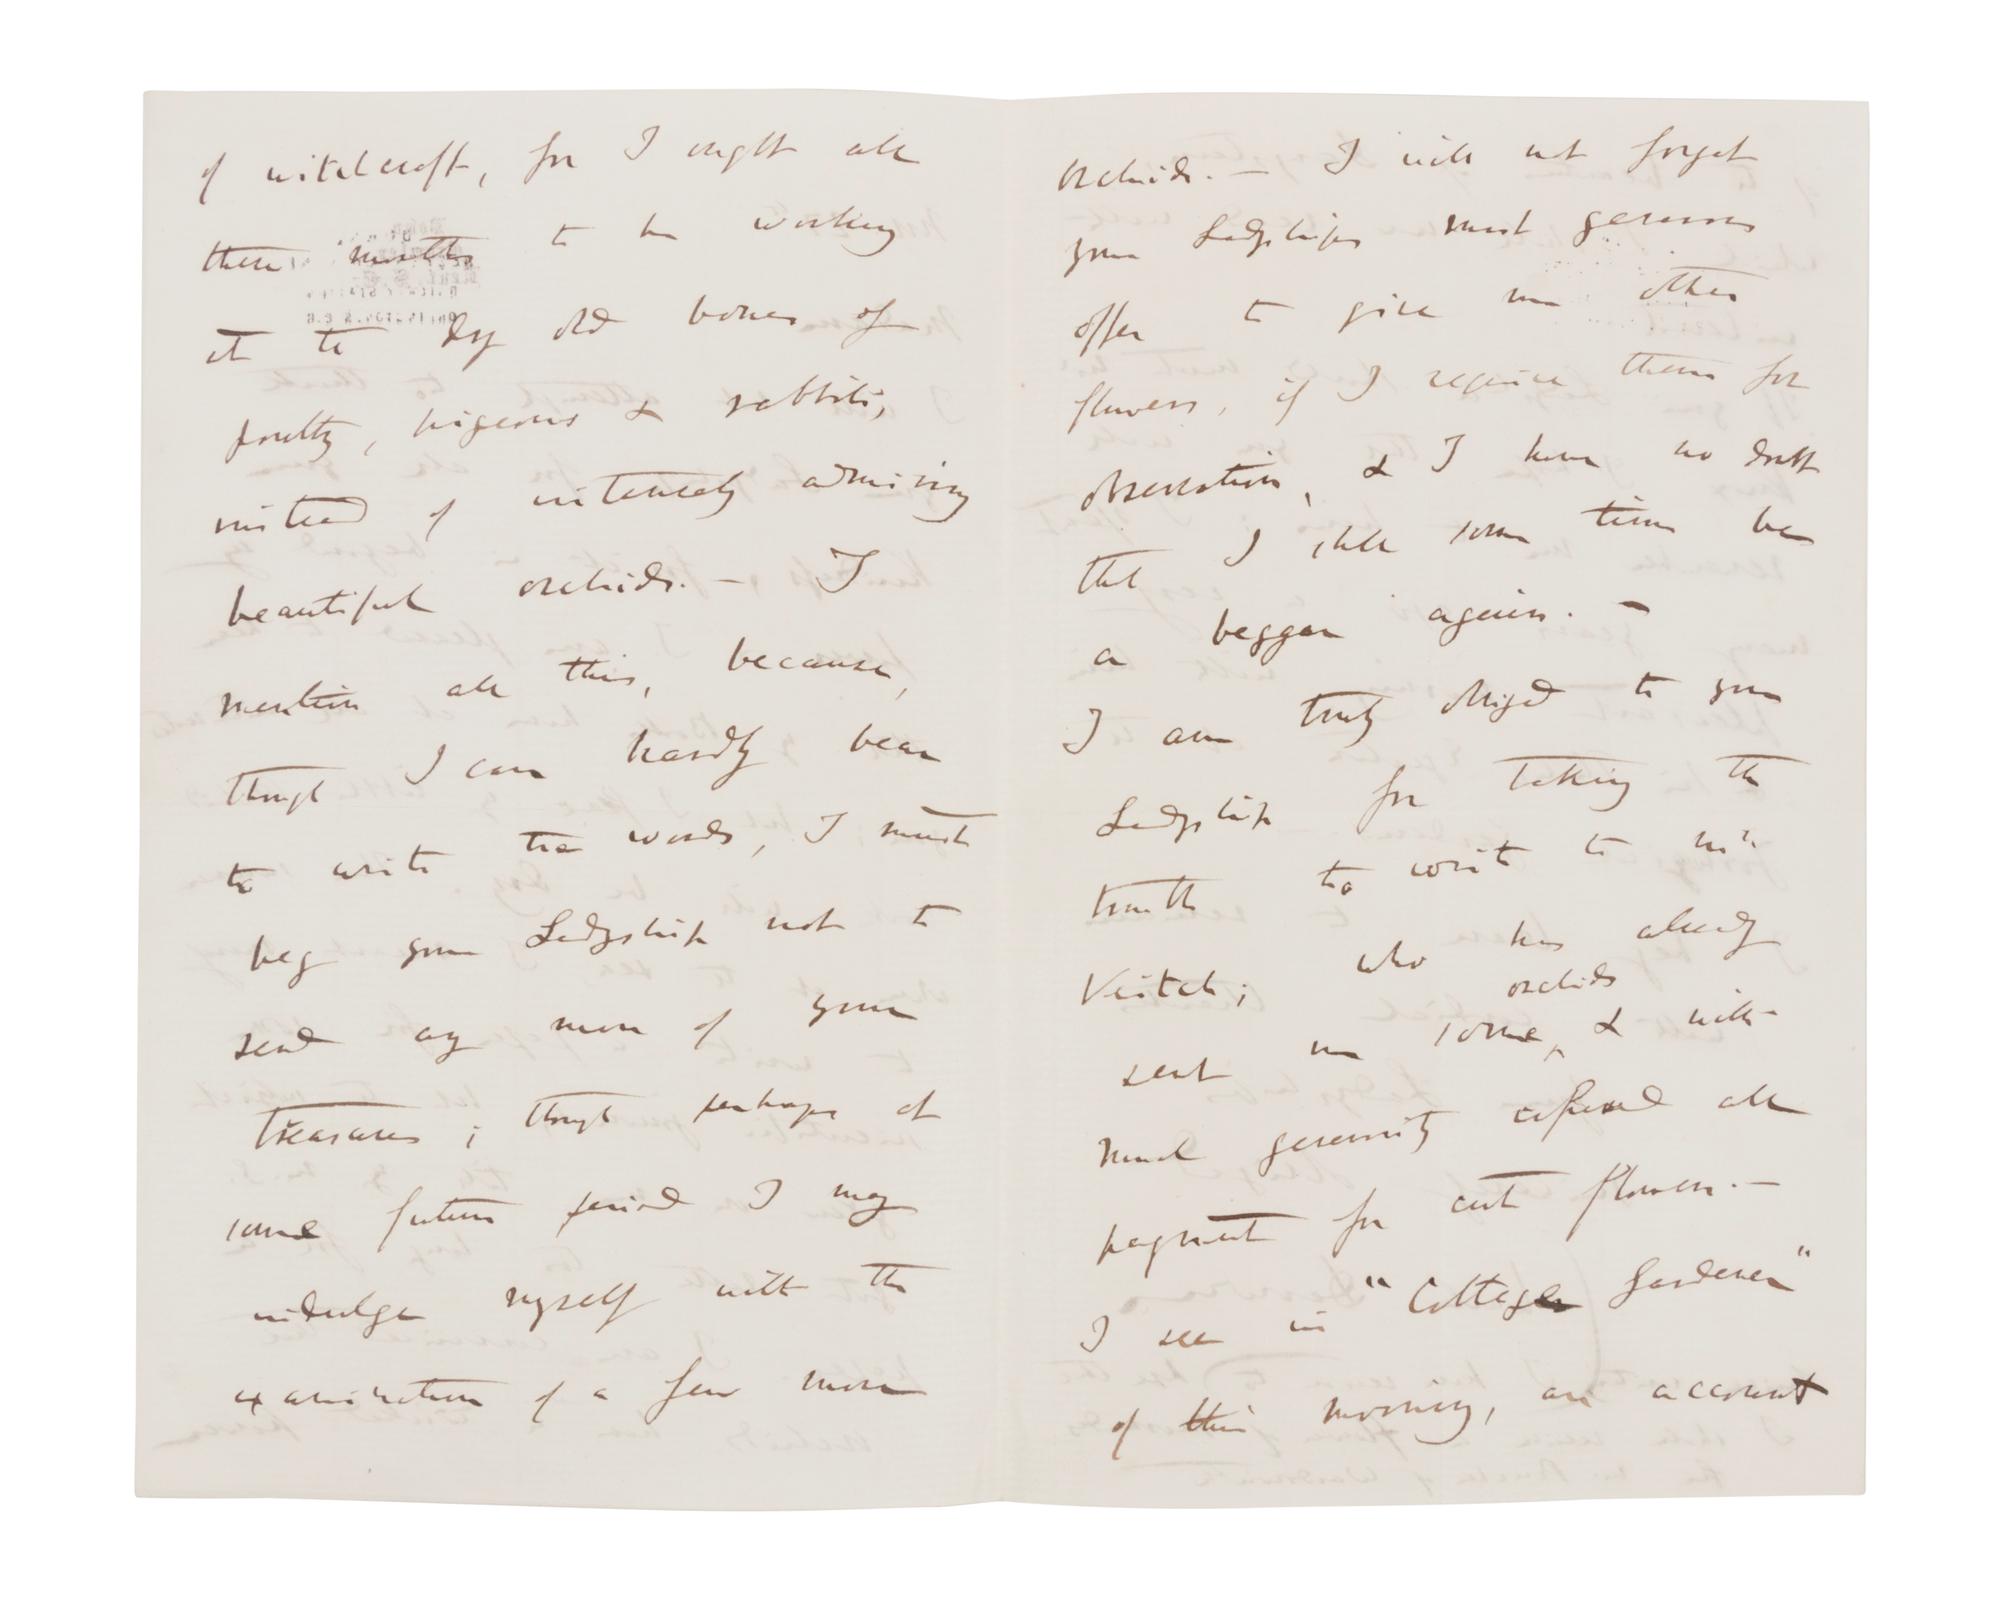 of witchcraft, for I ought all
these months to be working
at the dry old bones of
poultry, pigeons & rabbits,
instead of intensely admiring
beautiful orchids. — I
mention all this, because,
though I can hardly bear
to write the words, I must
beg your Ladyship not to
send any more of your
treasures; though perhaps at
some future period I may
indulge myself with the
examination of a few more
orchids. — I will not forget
your Ladyships most generous
offer to give me other
flowers, if I require them for
observation, & I have no doubt
that I shall some time be
a beggar again. —
I am truly obliged to your
Ladyship for taking the
trouble to write to Mr.
Veitch; who has already
orchids
sent me some, & with
much generosity refused all
payment for cut flowers. —
I see in "Cottage Gardener"
of this morning, an account